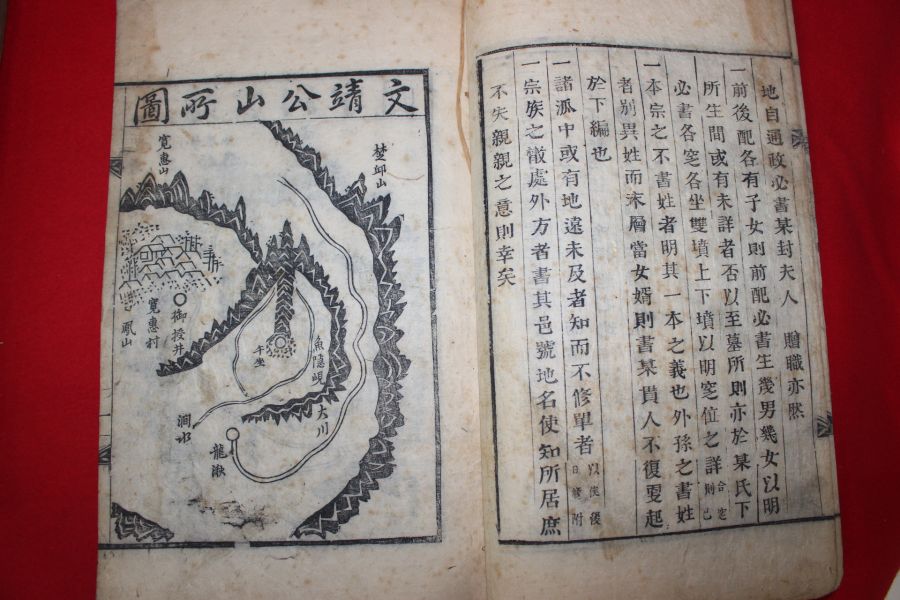 地自通政必書某封夫人 贈職亦然
一前後配各有子女則前配必書生幾男幾女以明
所生間或有未詳者否以至墓所則亦於某氏下
必書各窆各坐雙墳上下墳以明窆位之詳合窆則已
一本宗之不書姓者明其一本之義也外孫之書姓
者別異姓而末層當女婿則書某貫人不復更起
於下編也
一諸派中或有地遠未及者知而不修單者以俟後日修附
一宗族之散處外方者書其邑號地名使知所居庶
不失親親之意則幸矣
文靖公山所圖
楚卸山
寬惠山
寬惠村
御授井
鳳山
午坐
魚隱峴
大川
澗水
龍湫